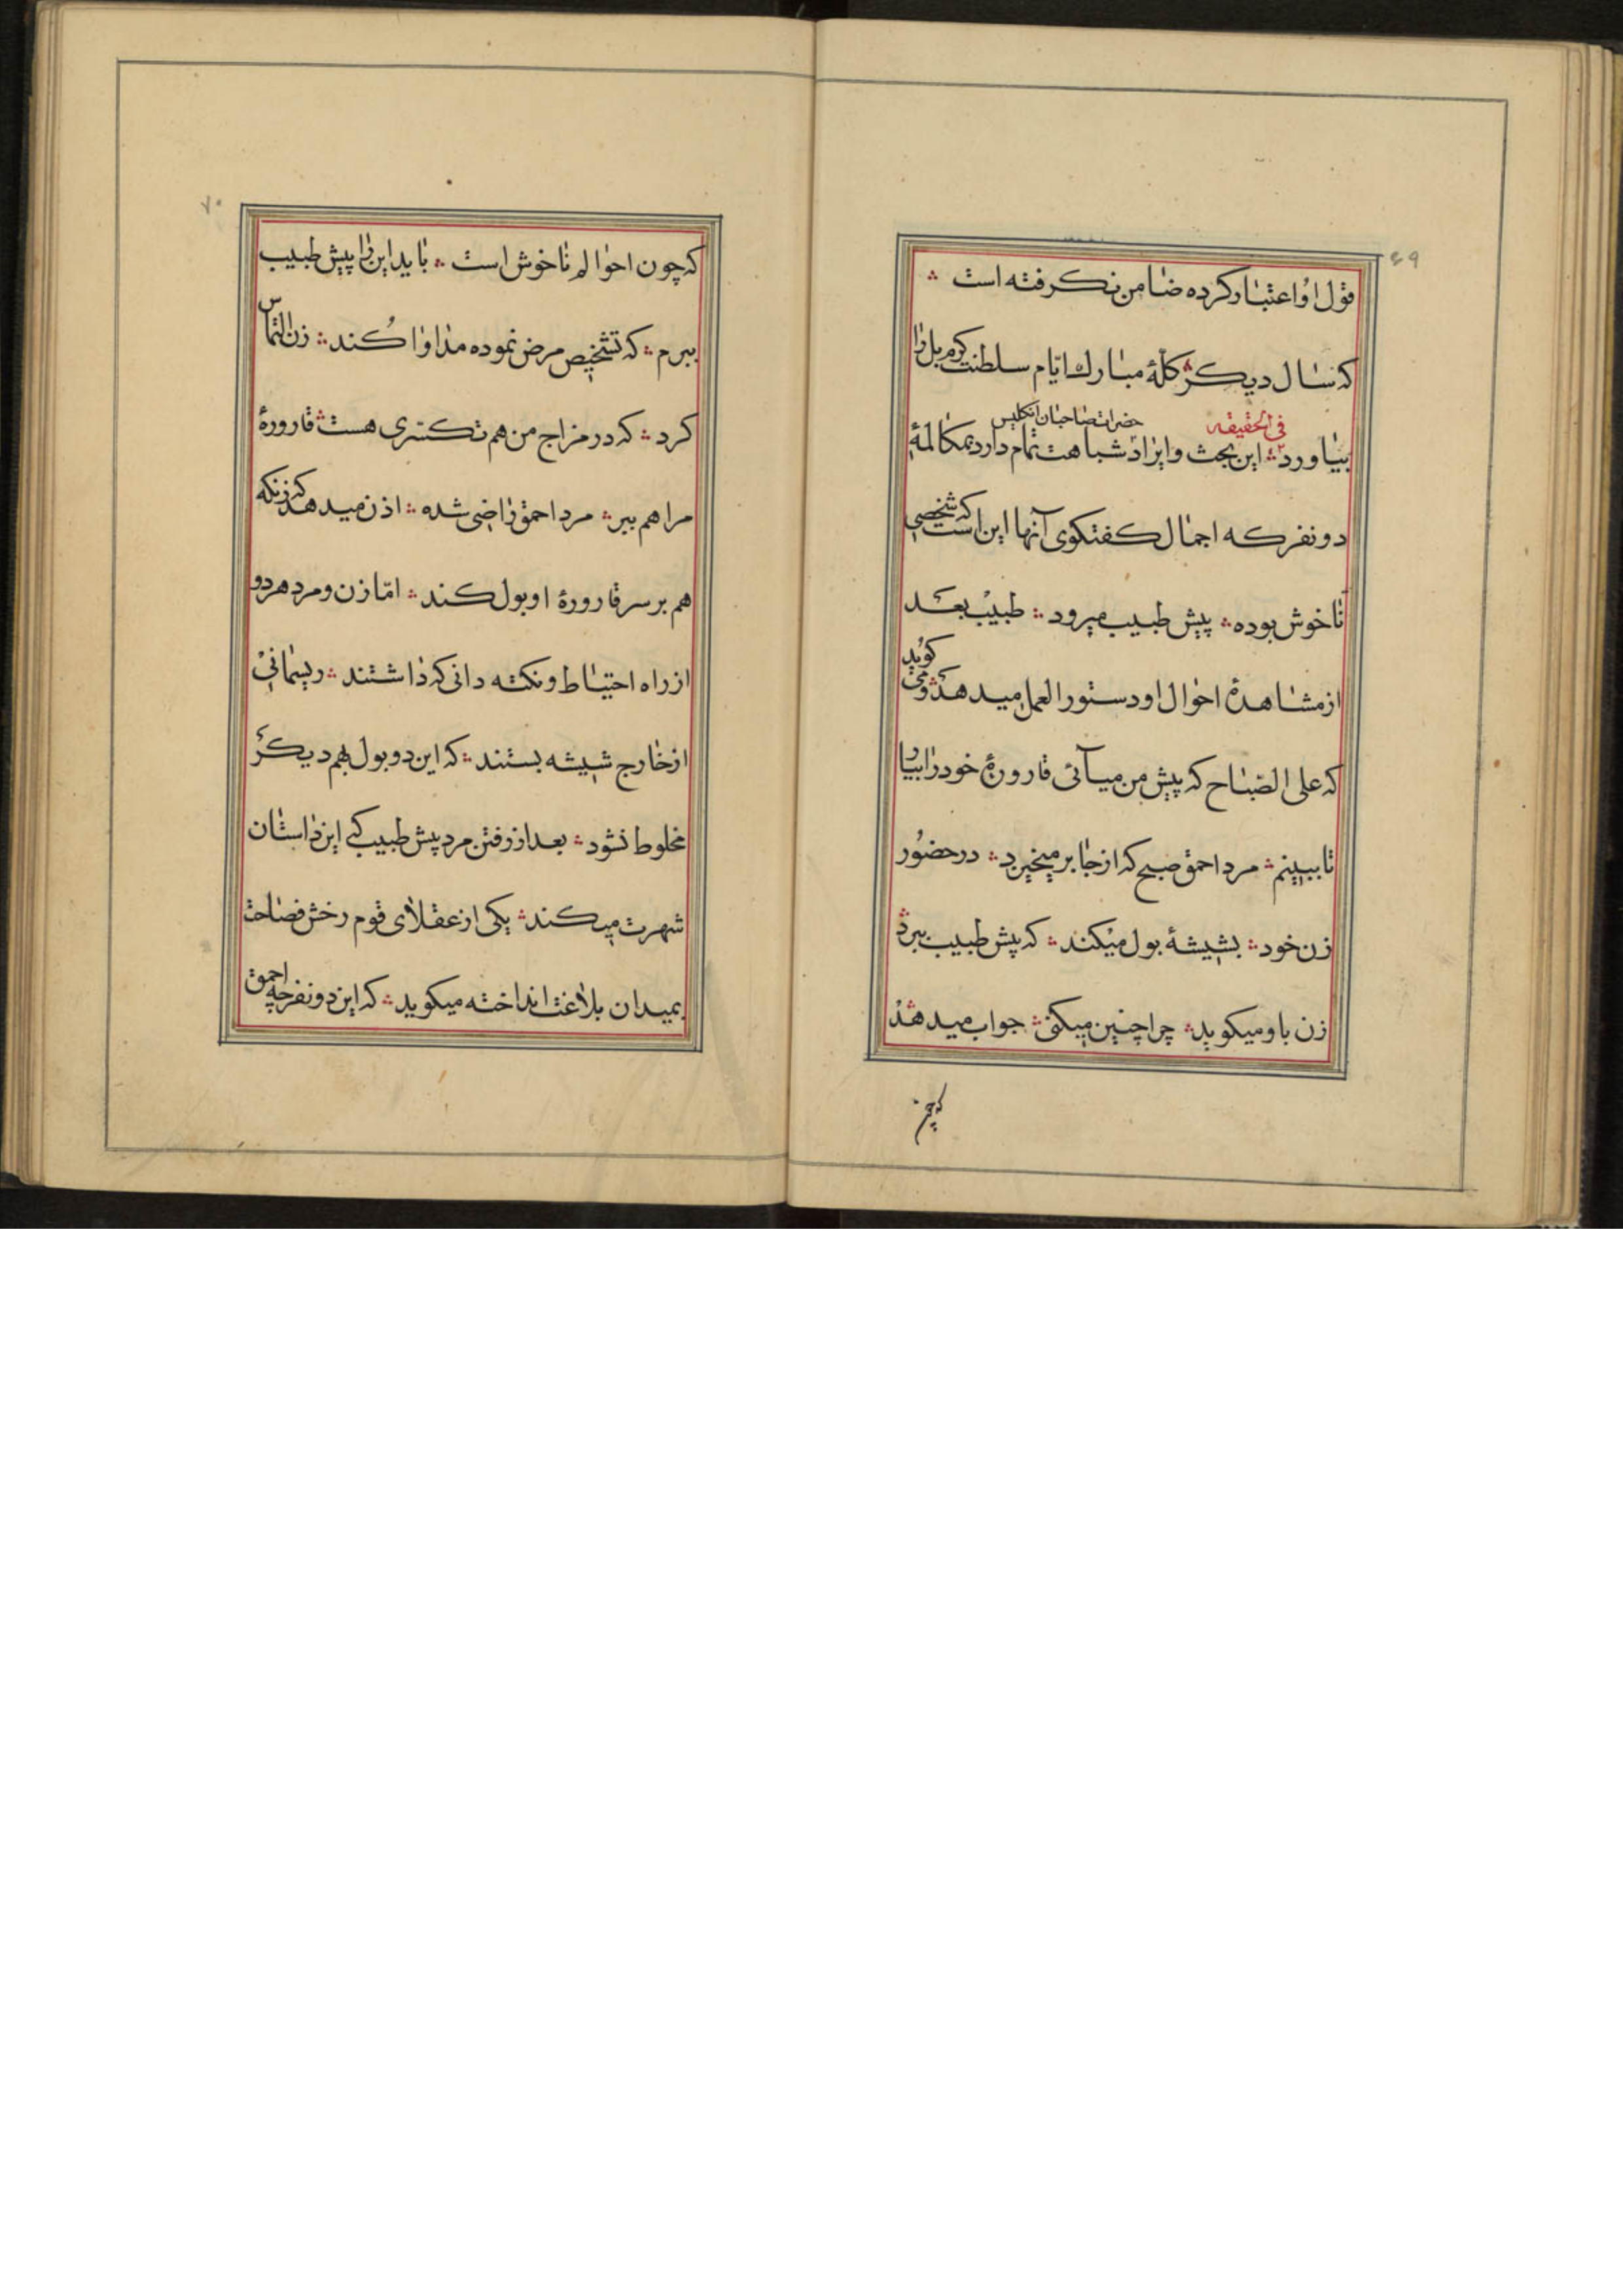 ۶۹
قول او اعتبار کرده ضامن نکرفته است ؞
که سال دیکر ؞ کلّهٔ مبارك ایّام سلطنت کرم بل را
فی الحقیقه حضرات صاحبان انکلیس
بیاورد ؞ این بحث و ایراد شباهت تمام دارد بمکالمهٔ
دو نفر که اجمال کفتکوی آنها این است که شخصی
ناخوش بوده ؞ پیش طبیب میرود ؞ طبیب بعد
از مشاهدهٔ احوال او دستور العمل میدهد ؞ و می کوید
که علی الصّباح که پیش من میآئی قارورهٔ خود را بیار
تا ببینم ؞ مرد احمق صبح که از جا بر میخیزد ؞ در حضور
زن خود ؞ بشیشهٔ بول میکند ؞ که پیش طبیب ببرد ؞
زن باو میکوید ؞ چرا چنین میکنی ؞ جواب میدهد ؞
که چون
۷۰
که چون احوالم ناخوش است ؞ باید این را پیش طبیب
ببرم ؞ که تشخیص مرض نموده مداوا کند ؞ زن التماس
کرد ؞ که در مزاج من هم تکسّری هست ؞ قارورهٔ
مرا هم ببر ؞ مرد احمق راضی شده ؞ اذن میدهد که زنکه
هم بر سر قارورهٔ او بول کند ؞ امّا زن و مرد هر دو
از راه احتیاط و نکته دانی که داشتند ؞ ریسمانی
از خارج شیشه بستند ؞ که این دو بول بهم دیکر
مخلوط نشود ؞ بعد از رفتن مرد پیش طبیب که این داستان
شهرت میکند ؞ یکی از عقلای قوم رخش فصاحت
بمیدان بلاغت انداخته میکوید ؞ که این دو نفر چه احمق